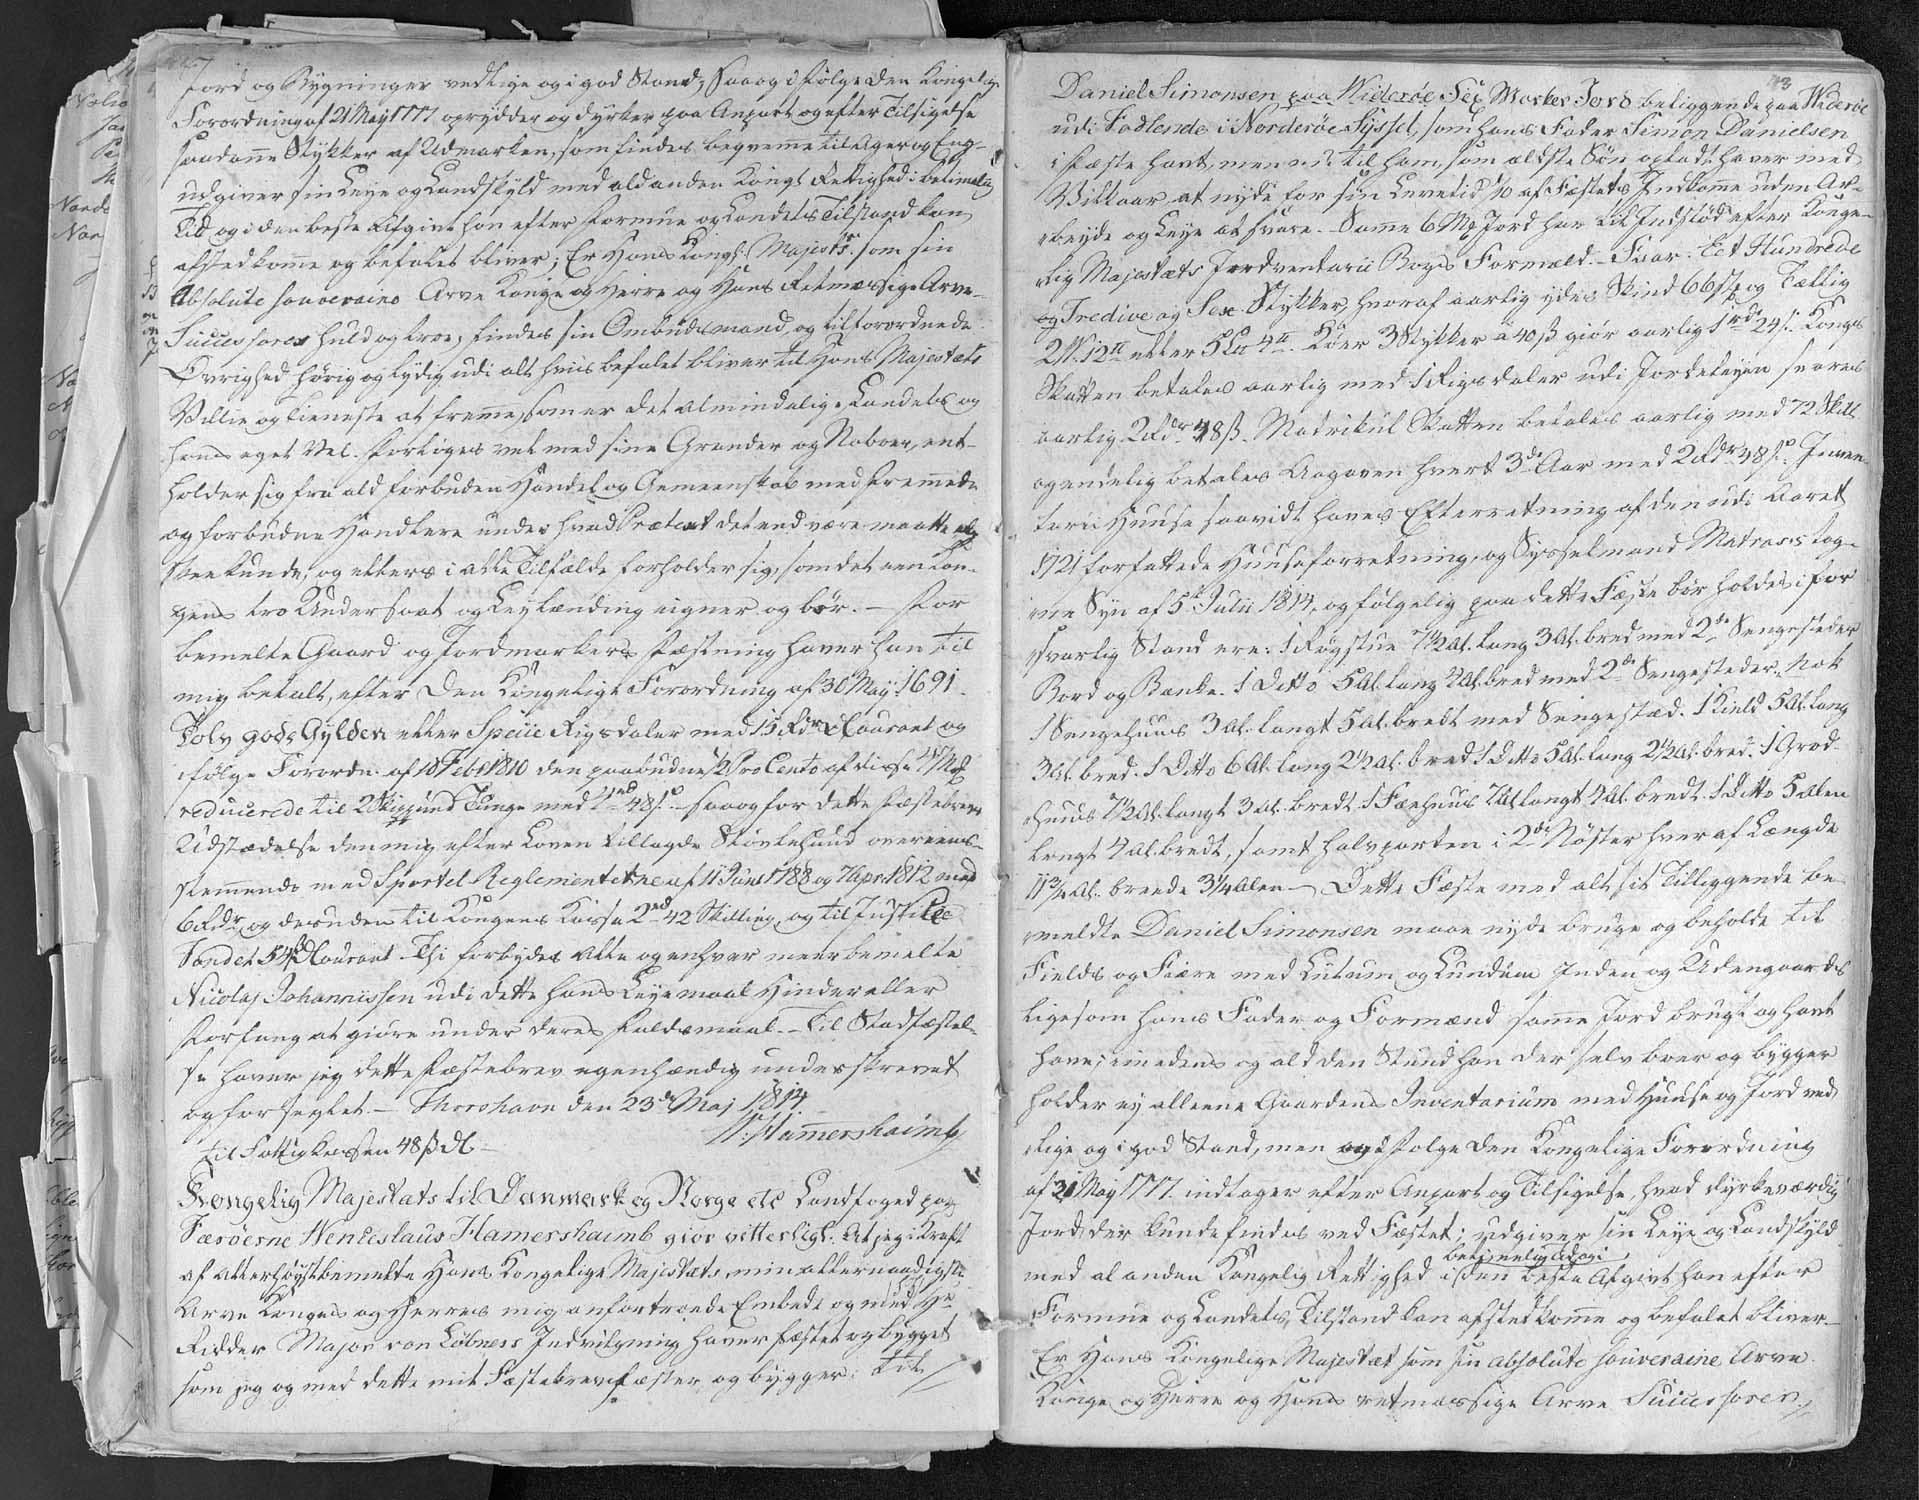 Jord og Bygninger vedlige og i god Stand, saa og i følge den Kongelige
Forordning af 21 May 1777 oprydder og dyrker paa Anpart og efter Tilsigelse
saadanne Stykker af Udmarken, som findes beqveme til Ager og Eng-
udgiver sin Leye og Landskyld med ald anden Kongl Rettighed i betimelig
Tid og i den beste Afgivt han efter Formue og Landets Tilstand kan
afstedkomme og befalet bliver; Er Hans Kongl. Majestt. som sin
Absolute souveraine Arve Konge og Herre og Hans Retmæssige Arve-
Successores huld og troe, findes sin Ombudsmand og tilforordnede
Øvrighed hørig og lydig udi alt hviis befalet bliver til Hans Majestæts
Villie og tieneste at fremme, som er det almindelige Landets og
hans eget Vel. Forliges vel med sine Grander og Naboer, ent-
holder sig fra ald forbuden Handel og Gemeenskab med fremmede
og forbudne Handlere under hvad Prætext det end være maatte
skee kunde, og ellers i alle Tilfælde forholder sig, som det een Kon-
gens tro Undersaat og Leylænding eigner og bør. — For
bemelte Gaard og Jordmarkers Fæstning haver han til
mig betalt, efter den Kongelige Forordning af 30 May 1691.
Tolv gode Gylden eller Specie Rigsdaler med 15 Rdr Courant og
ifølge Forordn: af 10 Febr 1810 den paabudne ½ ProCento af disse
reducerede til 2 Skippund Tunge med 2rd 48 s. — saa og for dette Fæstebrevs
Udstædelse den mig efter Loven tillagde Støvlehuud overeens-
stemmende med Sportel-Reglementerne af 11 Juni 1788 og 7 Apr. 1812 med
6 Rdr, og desuden til Kongens Kasse 2rd 42 Skilling, og til Justits
Fondet 54 ß Courant. Thi forbydes alle og enhver meerbemelte
Nicolaj Johannissen udi dette hans Leyemaal Hinder eller
Forfang at giøre under deres Faldsmaal. — Til Stadfæstel-
se haver jeg dette Fæstebrev egenhændig underskrevet
og forseglet. — Thorshavn den 23de Maj 1814
W. Hammershaimb
til Fattigkassen 48 ß
Kongelig Majestæts til Danmark og Norge etc Landfoged paa
Færøerne Wenceslaus Hamershaimb giør vitterligt: At jeg i Kraft
af Allerhøystbemelte Hans Kongelige Majestæts, min allernaadigste
Arve Konges og Herres mig anfortroede Embede og med Hr
Ridder Major von Löbners Indvilgning haver fæstet og bygget
som jeg og med dette mit Fæstebrev fæster og bygger: til
Daniel Simonsen paa Widerøe Sex Marker Jord beliggende paa Widerøe
udi Fodlende i Norderøe Syssel, som hans Fader Simon Danielsen
i Fæste havt, men nu til ham, som ældste Søn opladt haver med
Vilkaar at nyde for sin Levetid ⅒ af Fæstets Indkomme uden Ar-
beyde og Leye at svare. — Samme 6 Mk Jord har til Indstød efter Konge-
lig Majestæts Jordeventarii Bogs Formæld. — Faar: Eet Hundrede
og Tredive og Sex Stykker, hvoraf aarlig ydes Skind 66 st og Tællig
Køer 3 Stykker a 40 ß giør aarlig 1rd 24 s. Konge
Skatten betales aarlig med 1 Rigsdaler udi Jordeleyen svares
aarlig 2 Rdr 48 ß. Matrikul Skatten betales aarlig med 72 Skill
og endelig betales Aagaven hvert 3de Aar med 2 Rdr 48 s. Inven-
tarii Huuse saavidt haves Efterretning af den udi Aaret
1721 forfattede Huuseforretning, og Sysselmand Matrass tag-
ne Syn af 5te Julii 1814, og følgelig paa dette Fæste bør holdes i for-
svarlig Stand ere: 1 Røgstue 7½ Al. lang 3 Al. bred med 2de Sengesteder
Bord og Bænke. 1 Ditto 5 Al. lang 4 Al. bred med 2de Sengesteder. Nok
1 Sengehuus 3 Al. langt 5 Al. bredt med Sengestæd. 1 Kield 5 Al. lang
3 Al. bred. 1 Ditto 6 Al. lang 2½ Al. bred 1 Ditto 5 Al. lang 2½ Al. bred. 1 Grod-
huus 7½ Al. langt 3 Al. bredt. 1 Fæehuus 7 Al langt 4 Al. bredt. 1 Ditto 5 Alen
langt 4 Al. bredt, samt halvparten i 2de Nøster hver af Længde
11¾ Al. breede 3¼ Alen — Dette Fæste med alt sit Tilliggende be-
meldte Daniel Simonsen maae nyde bruge og beholde til
Fields og Fiære med Lutum og Lundum Inden og Udengaards
ligesom hans Fader og Formænd samme Jord brugt og havt
have; imedens og ald den Stund han der selv boer og bygger
holder ey alleene Gaardens Inventarium med Huuse og Jord ved
lige og i god Stand, men endfølge den Kongelige Forordning
af 21 May 1777 indtager efter Anpart og Tilsigelse, hvad dyrkeværdig
Jord der kunde findes ved Fæstet; udgiver sin Leye og Landskyld
betimelig tid og i
med al anden Kongelig Rettighed i den beste Afgivt han efter
Formue og Landets Tilstand kan afstedkomme og befalet bliver.—
Er Hans Kongelige Majestæt som sin absolute souveraine Arve
Konge og Herre og Hans retmæssige Arve Successorer